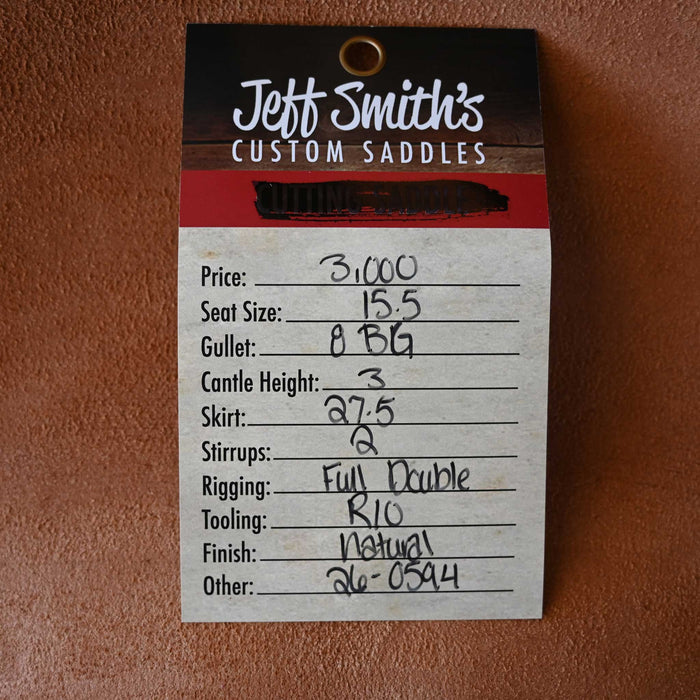 Jeff Smith's
CUSTOM SADDLES
CUTTING SADDLE
Price: 3,000
Seat Size: 15.5
Gullet: 8 BG
Cantle Height: 3
Skirt: 27.5
Stirrups: 2
Rigging: Full Double
Tooling: R10
Finish: Natural
Other: 26-0594